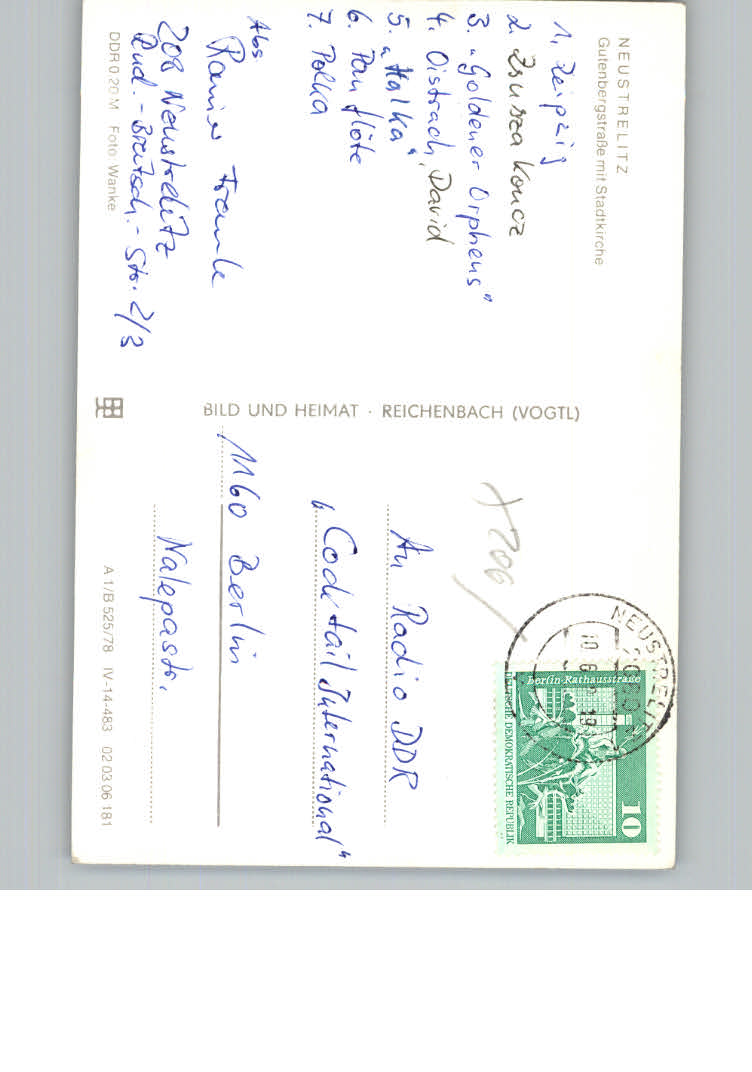 NEUSTRELITZ
Gutenbergstraße mit Stadtkirche
1. Leipzig
2. Zsusza Koncz
3. „Goldener Orpheus"
4. Oistrach, David
5. „Halka"
6. Panflöte
7. Polka
Abs
208 Neustrelitz
Str. 2/3
DDR 0,20 M Foto: Wanke
BILD UND HEIMAT · REICHENBACH (VOGTL)
NEUSTRELITZ
Berlin-Rathausstraße
10
DEUTSCHE DEMOKRATISCHE REPUBLIK
An Radio DDR
„Cocktail International"
1160 Berlin
Nalepastr.
A 1/B 525/78 IV-14-483 02 03 06 181